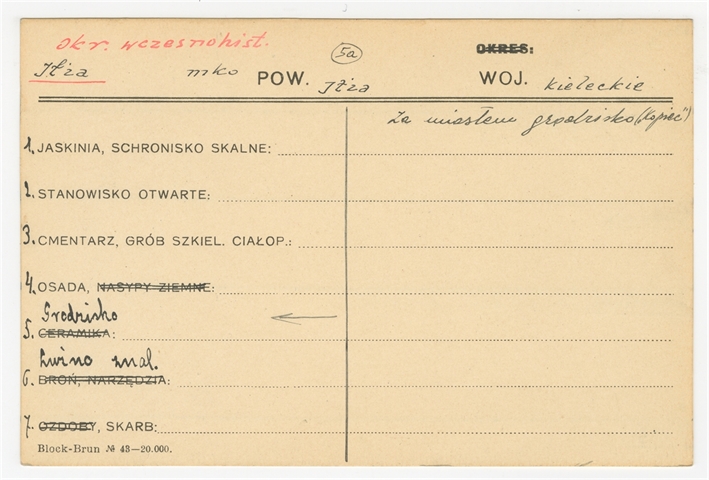 okr. wczesnohist.
5a
OKRES:
Iłża mko POW. Iłża WOJ. kieleckie
za miastem grodzisko ("Kopiec")
1. JASKINIA, SCHRONISKO SKALNE:
2. STANOWISKO OTWARTE:
3. CMENTARZ, GRÓB SZKIEL. CIAŁOP.:
4. OSADA, NASYPY ZIEMNE:
Grodzisko
5. CERAMIKA:
Luźno znal.
6. BROŃ, NARZĘDZIA:
7. OZDOBY, SKARB:
Block-Brun № 43—20.000.